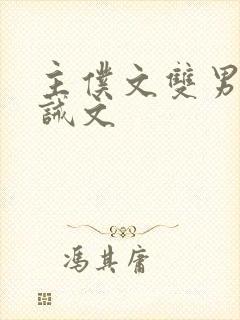 主僕文雙男
誡文
馮其庸